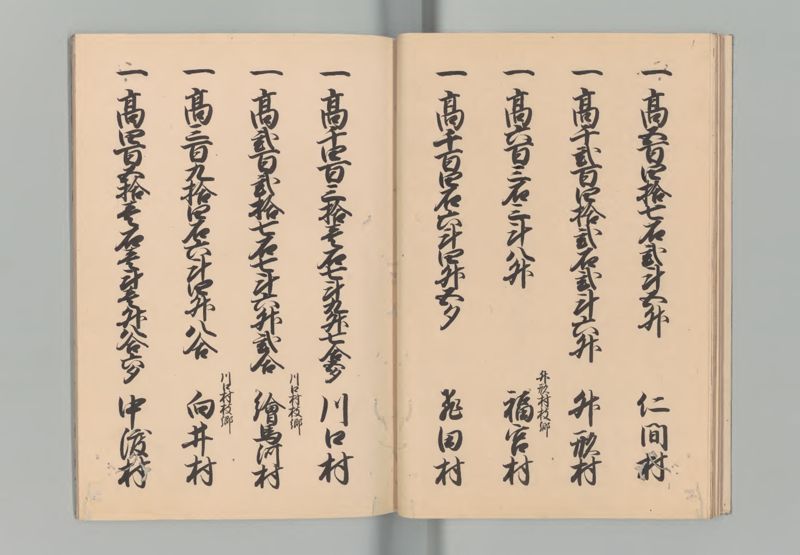 一 高五百四拾七石弐斗五升 仁間村
一 高千弐百四拾弐石弐斗六升 升形村
升形村枝郷
一 高六百三石三斗八升 福宮村
一 高千百四石六斗四升五夕 飛田村
一 高千四百三拾壱石七斗九升七合 川口村
川口村枝郷
一 高弐百弐拾七石七斗六升弐合 繪馬河村
川口村枝郷
一 高三百九拾四石六斗四升八合 向井村
一 高四百五拾壱石壱斗壱升八合六夕 中渡村